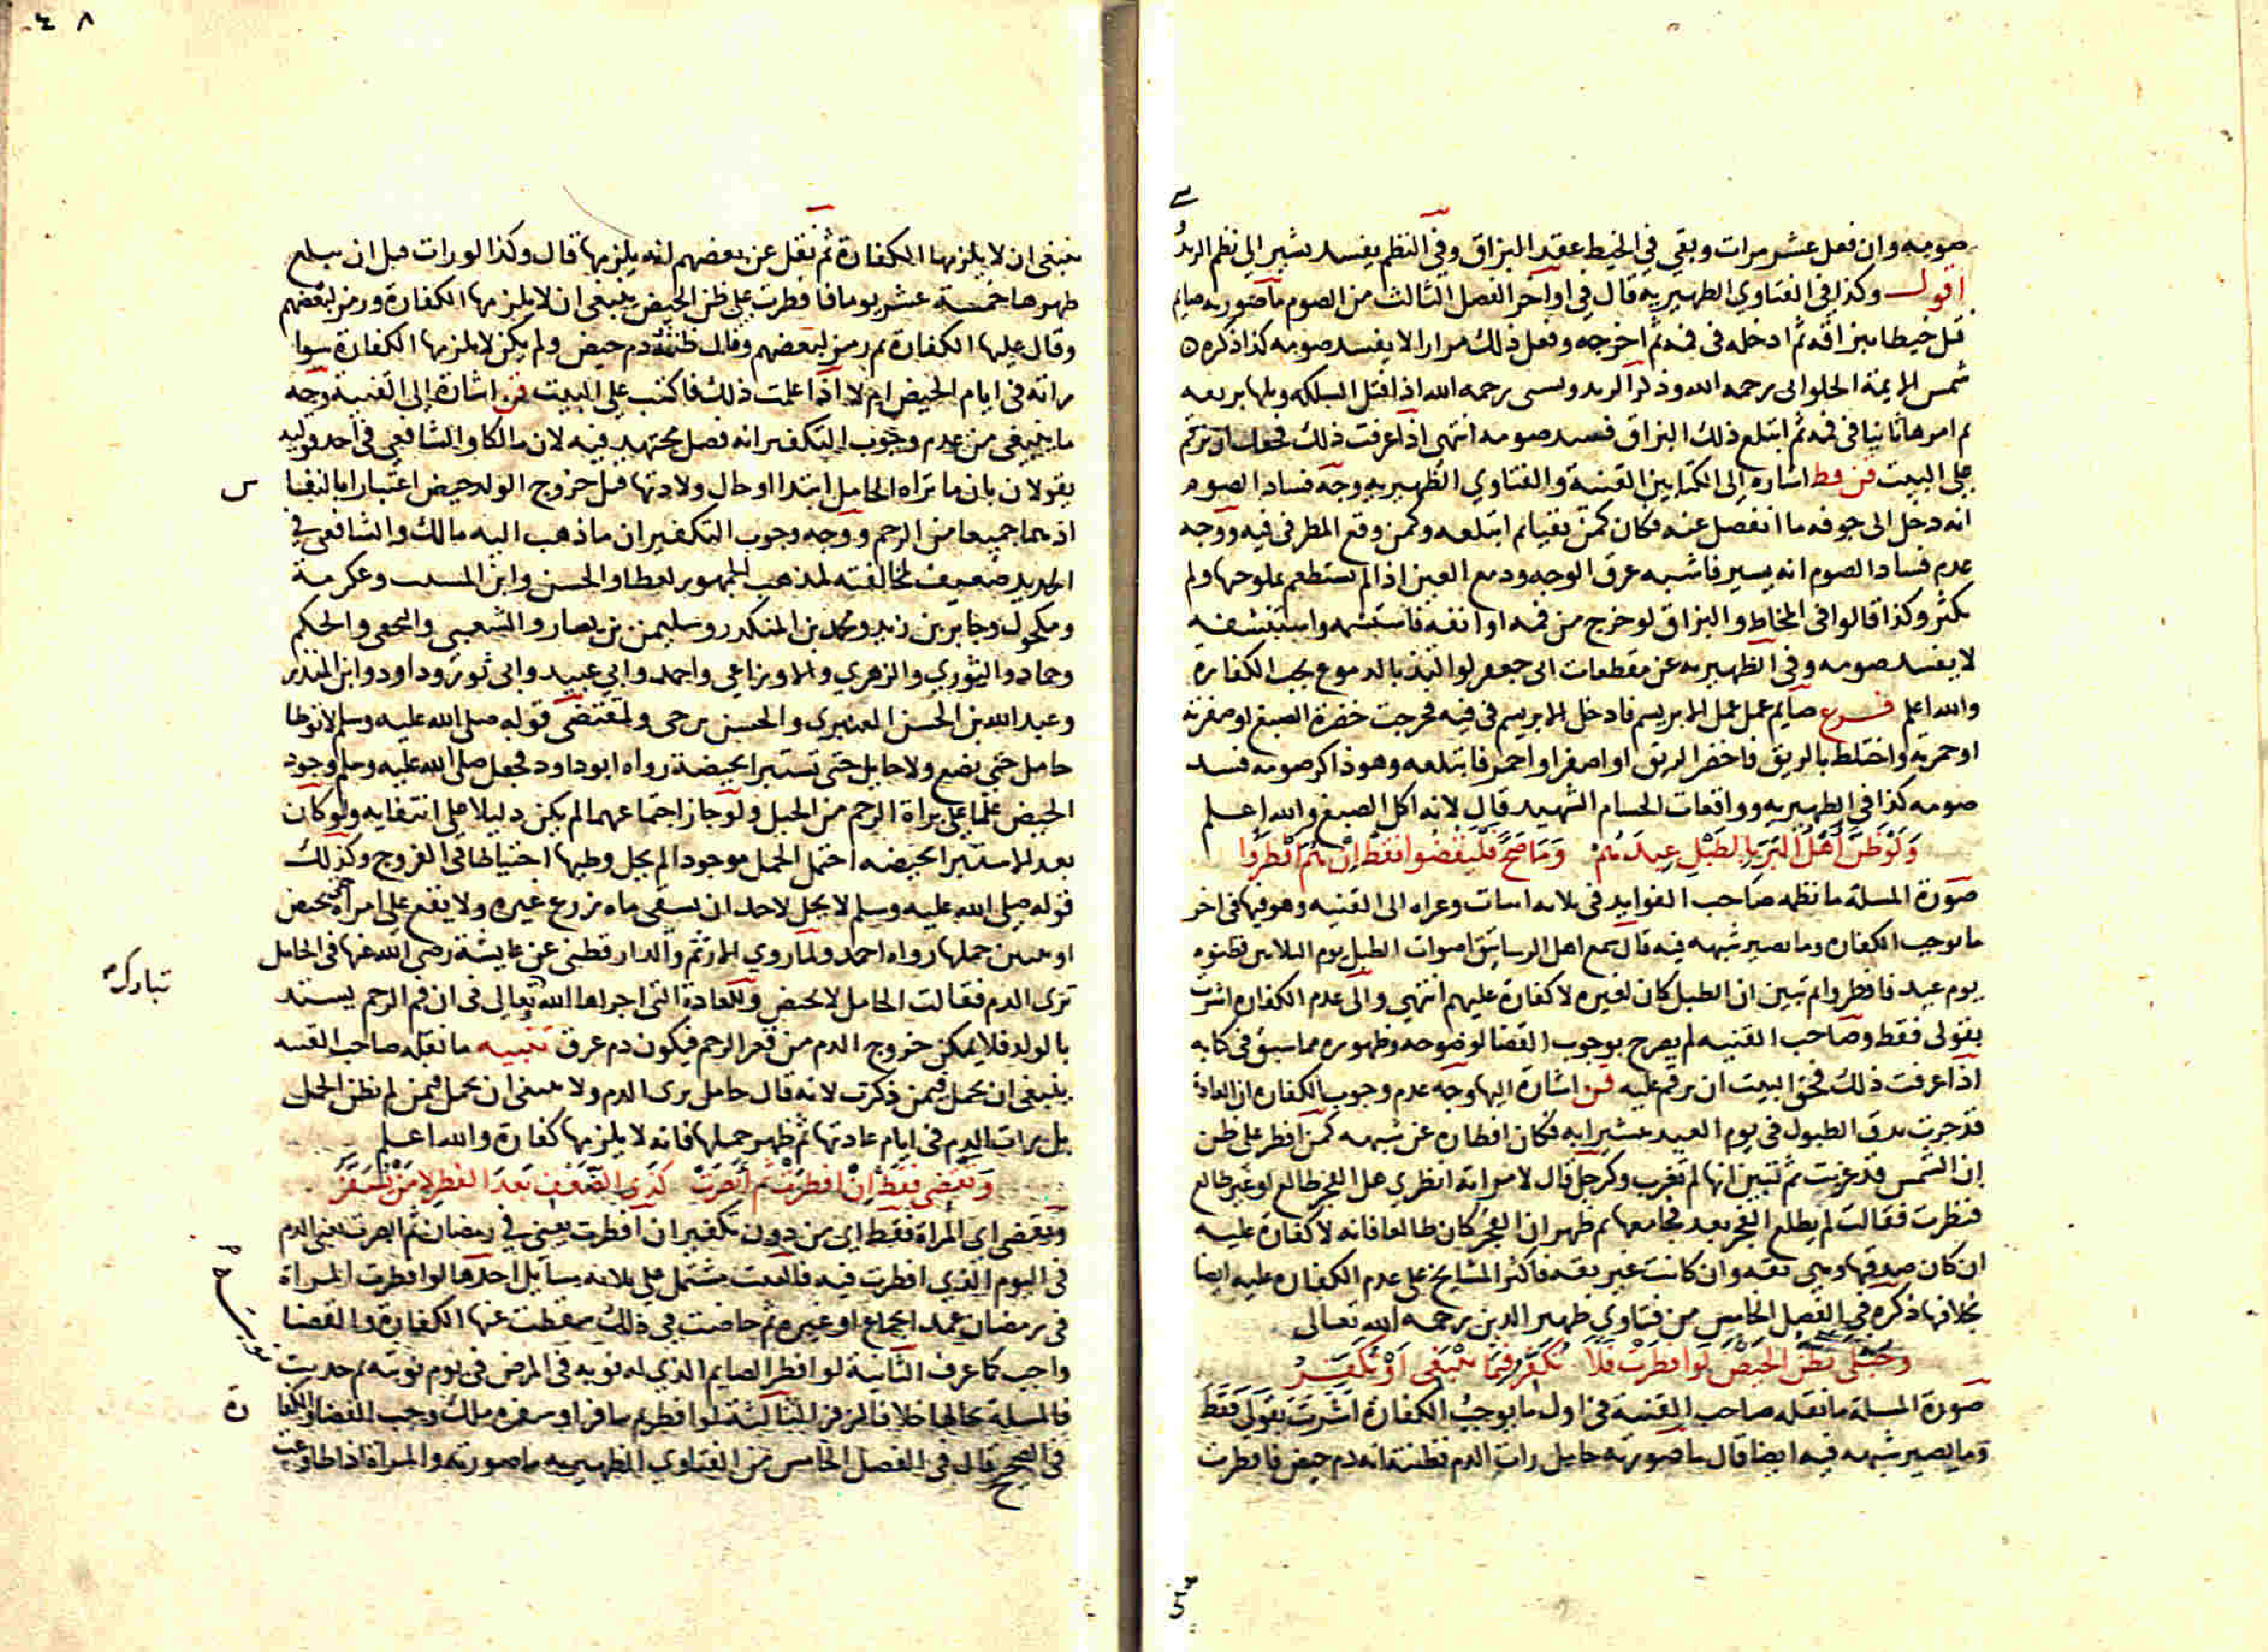 صومه وان فعل عشر مرات وبقي في الخيط عقد البزاق وفي النظم يفسد يشير الى نظم الزند
اقول وكذا في الفتاوي الظهيريه قال في اواخر الفصل الثالث من الصوم ما صورته صايم
فتل خيطا ببزاقه ثم ادخله في فمه ثم اخرجه وفعل ذلك مرارا لا يفسد صومه كذا ذكره
شمس الايمة الحلواني رحمه الله وذكر الزندويستى رحمه الله اذا فتل السلكه وبلها بريقه
ثم امرها ثانيا في فمه ثم ابتلع ذلك البزاق فسد صومه انتهى اذا عرفت ذلك
على البيت قن فظ اشاره الى الكتابين القنية والفتاوي الظهيريه وجه فساد الصوم
انه دخل الى جوفه ما انفصل عنه فكان كمن تقيا ثم ابتلعه وكمن وقع المطر في فيه ووجه
عدم فساد الصوم انه يسير فاشبه عرق الوجه ودمع العين اذا لم يستطعم ملوحها ولم
يكثر وكذا قالوا في المخاط والبزاق لو خرج من فمه او انفه فاستشمه واستنشفه
لا يفسد صومه وفي الظهيريه عن مقطعات ابى جعفر لو التذ بالدموع يجب الكفارة
والله اعلم فرع صايم عمل عمل الابريسم فادخل الابريسم في فيه فخرجت خضرة الصبغ او صفرته
او حمرته واختلط بالريق فاخضر الريق او اصفر او احمر فابتلعه وهو ذاكر صومه فسد
صومه كذا في الظهيريه وواقعات الحسام الشهيد قال لانه اكل الصبغ والله اعلم
وَلَوْ ظَنَّ اَهْلُ البَرِّ بِالطَبْلِ عِيدَهُمْ وَمَا صَحَّ فَلْيَقْضُوا فَقَطْ اِنْ هُمْ افْطَرُوا
صورة المسلة ما نظمه صاحب الفوايد في ثلاثه ابيات وعزاه الى القنيه وهو فيها في اخر
ما يوجب الكفاره وما يصير شبهه فيه قال سمع اهل الرساتيق اصوات الطبل يوم الثلاثين فظنوه
يوم عيد فافطروا ثم تبين ان الطبل كان لغيره لا كفارة عليهم انتهي والى عدم الكفاره اشرت
بقولى فقط وصاحب القنيه لم يصرح بوجوب القضا لوضوحه وظهوره مما سبق في كتابه
اذا عرفت ذلك فحق البيت ان يرقم عليه قن اشارة اليها وجه عدم وجوب الكفاره ان العادة
قد جرت بدق الطبول في يوم العيد عشيرايه فكان افطاره عن شبهه كمن افطر على ظن
ان الشمس قد غربت ثم تبين انها لم تغرب وكرجل قال لامراته انظري هل الفجر طالع او غير طالع
فنظرت فقالت لم يطلع الفجر بعد فجامعها ثم ظهر ان الفجر كان طالعا فانه لا كفارة عليه
ان كان صدقها وهي ثقه وان كانت غير ثقه فاكثر المشايخ على عدم الكفاره عليه ايضا
بخلافها ذكره في الفصل الخامس من فتاوي ظهير الدين رحمه الله تعالى
وَحُبْلَى بِظَنِّ الحَيْضِ لَوْ افطَرَتْ فَلَا تُكَفِّرْ فِيمَا يَنْبَغِي اَوْ تُكَفِّرُ
صورة المسلة ما نقله صاحب القنية في اول ما يوجب الكفارة اشرت بقولى فقط
وما يصير شبهه فيه ايضا قال ما صورته حامل رات الدم فظنته انه دم حيض فافطرت
ينبغي ان لا يلزمها الكفارة ثم نقل عن بعضهم انه يلزمها قال وكذا لو رات قبل ان يبلغ
طهرها خمسة عشر يوما فافطرت على ظن الحيض ينبغي ان لا يلزمها الكفارة ورمز لبعضهم
وقال عليها الكفارة ثم رمز لبعضهم وقال ظنته دم حيض ولم يكن لا يلزمها الكفارة سوا
راته في ايام الحيض ام لا اذا علمت ذلك فاكتب على البيت قن اشارة الى القنية وجه
ما ينبغي من عدم وجوب التكفير انه فصل مجتهد فيه لان مالكا والشافعي في احد قوليه
يقولان بان ما تراه الحامل ابتدا او حال ولادتها قبل خروج الولد حيض اعتبارا بالنفاس
اذ هما جميعا من الرحم ووجه وجوب التكفير ان ما ذهب اليه مالك والشافعي في
الجديد ضعيف لمخالفته لمذهب الجمهور لعطا والحسن وابن المسيب وعكرمة
ومكحول وجابر بن زيد ومحمد بن المنكدر وسليمن بن يسار والشعبي والنخعي والحكم
وحماد والثوري والزهري والاوزاعي واحمد وابي عبيد وابى ثور وداود وابن المنذر
وعبد الله بن الحسن العنبري والحسن بن حى ولمقتضى قوله صلى الله عليه وسلم لا توطا
حامل حتى تضع ولا حايل حتى تستبرا بحيضة رواه ابو داود فجعل صلى الله عليه وسلم وجود
الحيض علما على براة الرحم من الحبل ولو جاز اجتماعهما لم يكن دليلا على انتفايه ولو كان
بعد الاستبرا بحيضه احتمل الحمل موجودا لم يحل وطيها احتياطا في الفروج وكذلك
قوله صلى الله عليه وسلم لا يحل لاحد ان يسقي ماه زرع غيره ولا يقع على امراة حتى تحيض
او يتبين حملها رواه احمد ولما روي الاثرم والدارقطني عن عايشة رضي الله عنها في الحامل
ترى الدم فقالت الحامل لا تحيض وللعادة التي اجراها الله تعالى في ان فم الرحم يستد
تبارك و
بالولد فلا يمكن خروج الدم من قعر الرحم فيكون دم عرق تنبيه ما نقله صاحب القنيه
ينبغي ان يحمل فيمن ذكرت لانه قال حامل ترى الدم ولا ينبغي ان يحمل فيمن لم تظن الحمل
بل رات الدم في ايام عادتها ثم ظهر حملها فانه لا يلزمها كفارة والله اعلم
وَتَقْضِي فَقَطْ اِنْ افْطَرَتْ ثُمَّ اَبْصَرَتْ كَذِي الضُّعْفِ بَعْدَ الفِطْرِ لَا مَنْ يُسَفَّرُ
وتقضى اى المراة فقط اى من دون تكفير ان افطرت يعني في رمضان ثم ابصرت يعنى الدم
في اليوم الذي افطرت فيه فالبيت مشتمل على ثلاثه مسايل احدها لو افطرت المراة
في رمضان عمدا بجماع او غيره ثم حاضت في ذلك سقطت عنها الكفارة والقضا
واجب كما عرف الثانية لو افطر الصايم الذي له نوبه في المرض في يوم نوبته ثم حدثت
فالمسلة بحالها خلافا لزفر الثالثة لو افطر ثم سافر او سفره ملك وجب القضا والكفارة
في الصحيح قال في الفصل الخامس من الفتاوي الظهيريه ما صورته والمراة اذا طاوعت